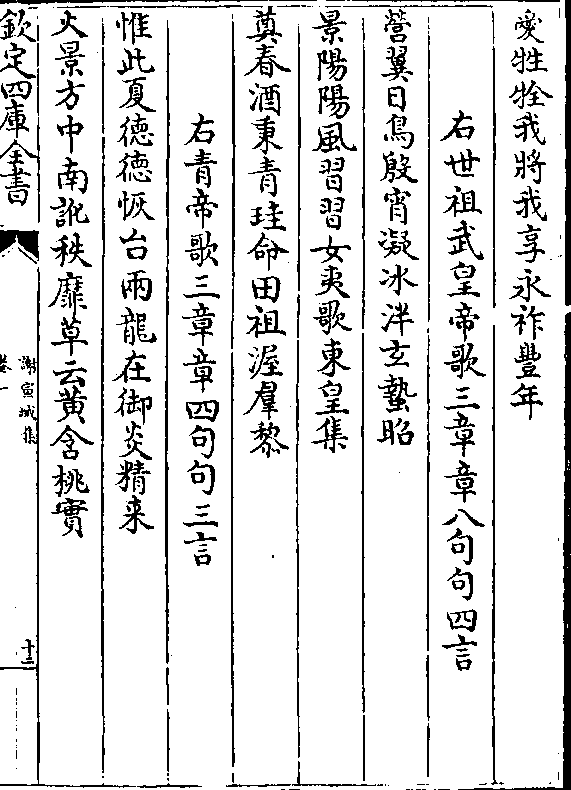 愛牲牷我將我享永祚豐年
右世祖武皇帝歌三章章八句句四言
營翼日鳥殷宵凝冰泮玄蟄昭
景陽陽風習習女夷歌東皇集
奠春酒秉青珪命田祖渥羣黎
右青帝歌三章章四句句三言
惟此夏德德恢台兩龍在御炎精来
火景方中南訛秩靡草云黄含桃實
欽定四庫全書
謝宣城集
卷一